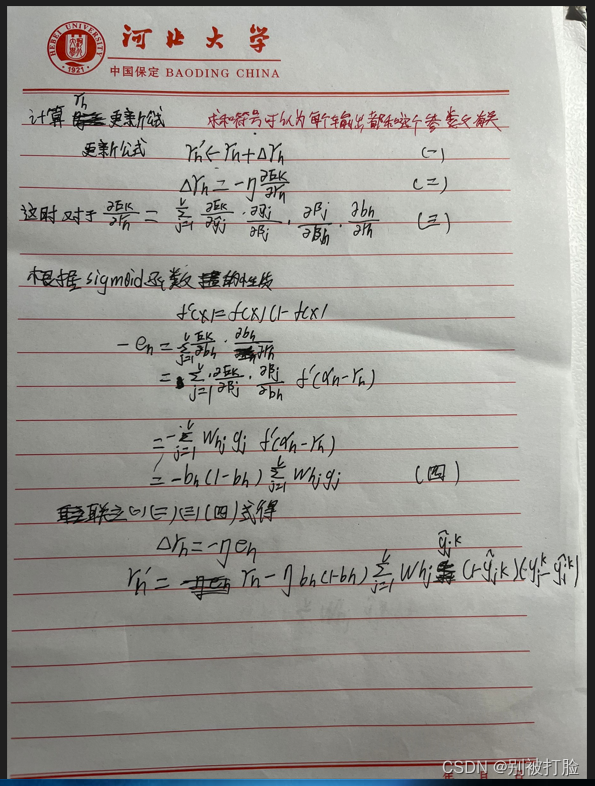 HEBEI UNIVERSITY
1921
河北大学
中国保定 BAODING CHINA
计算 γh 更新公式 求和符号可认为每个输出都和这个参数有关
更新公式 γh' ← γh + Δγh (一)
Δγh = -η ∂Ek/∂γh (二)
这时对于 ∂Ek/∂γh = Σ_{j=1}^{l} ∂Ek/∂ŷj · ∂ŷj/∂βj · ∂βj/∂bh · ∂bh/∂γh (三)
根据sigmoid函数的性质
f'(x) = f(x)(1-f(x))
-eh = Σ_{j=1}^{l} ∂Ek/∂bh · ∂bh/∂γh
= Σ_{j=1}^{l} · ∂Ek/∂βj · ∂βj/∂bh f'(αh-γh)
= -Σ_{j=1}^{l} Whj gj f'(αh-γh)
= -bh(1-bh) Σ_{j=1}^{l} Whj gj (四)
联立(一)(二)(三)(四)式得
Δγh = -η eh
γh' = γh - η bh(1-bh) Σ_{j=1}^{l} Whj ŷj^k (1-ŷj^k)(yj^k-ŷj^k)
年 月 日
CSDN @别被打脸